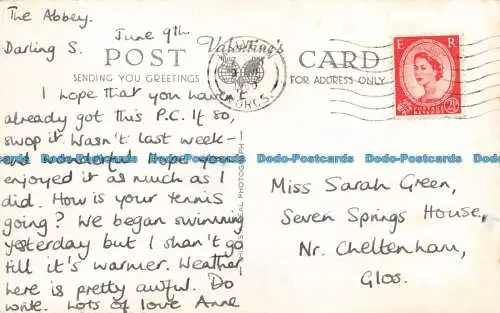 The Abbey.
June 9th
Darling S.
POST Valentine's CARD
SENDING YOU GREETINGS FOR ADDRESS ONLY
E R
I hope that you haven't
already got this P.C. If so,
swop it. Wasn't last week-
end wonderful. Hope you
enjoyed it as much as I
did. How is your tennis
going? We began swimming
yesterday but I shan't go
till it's warmer. Weather
here is pretty awful. Do
write. Lots of love Anne
WORCS.
POSTAGE
REVENUE
2½D
PHOTOGRAPH
Miss Sarah Green,
Seven Springs House,
Nr. Cheltenham,
Glos.
Dodo-Postcards Dodo-Postcards Dodo-Postcards Dodo-Postcards
Dodo-Postcards Dodo-Postcards Dodo-Postcards Dodo-Postcards